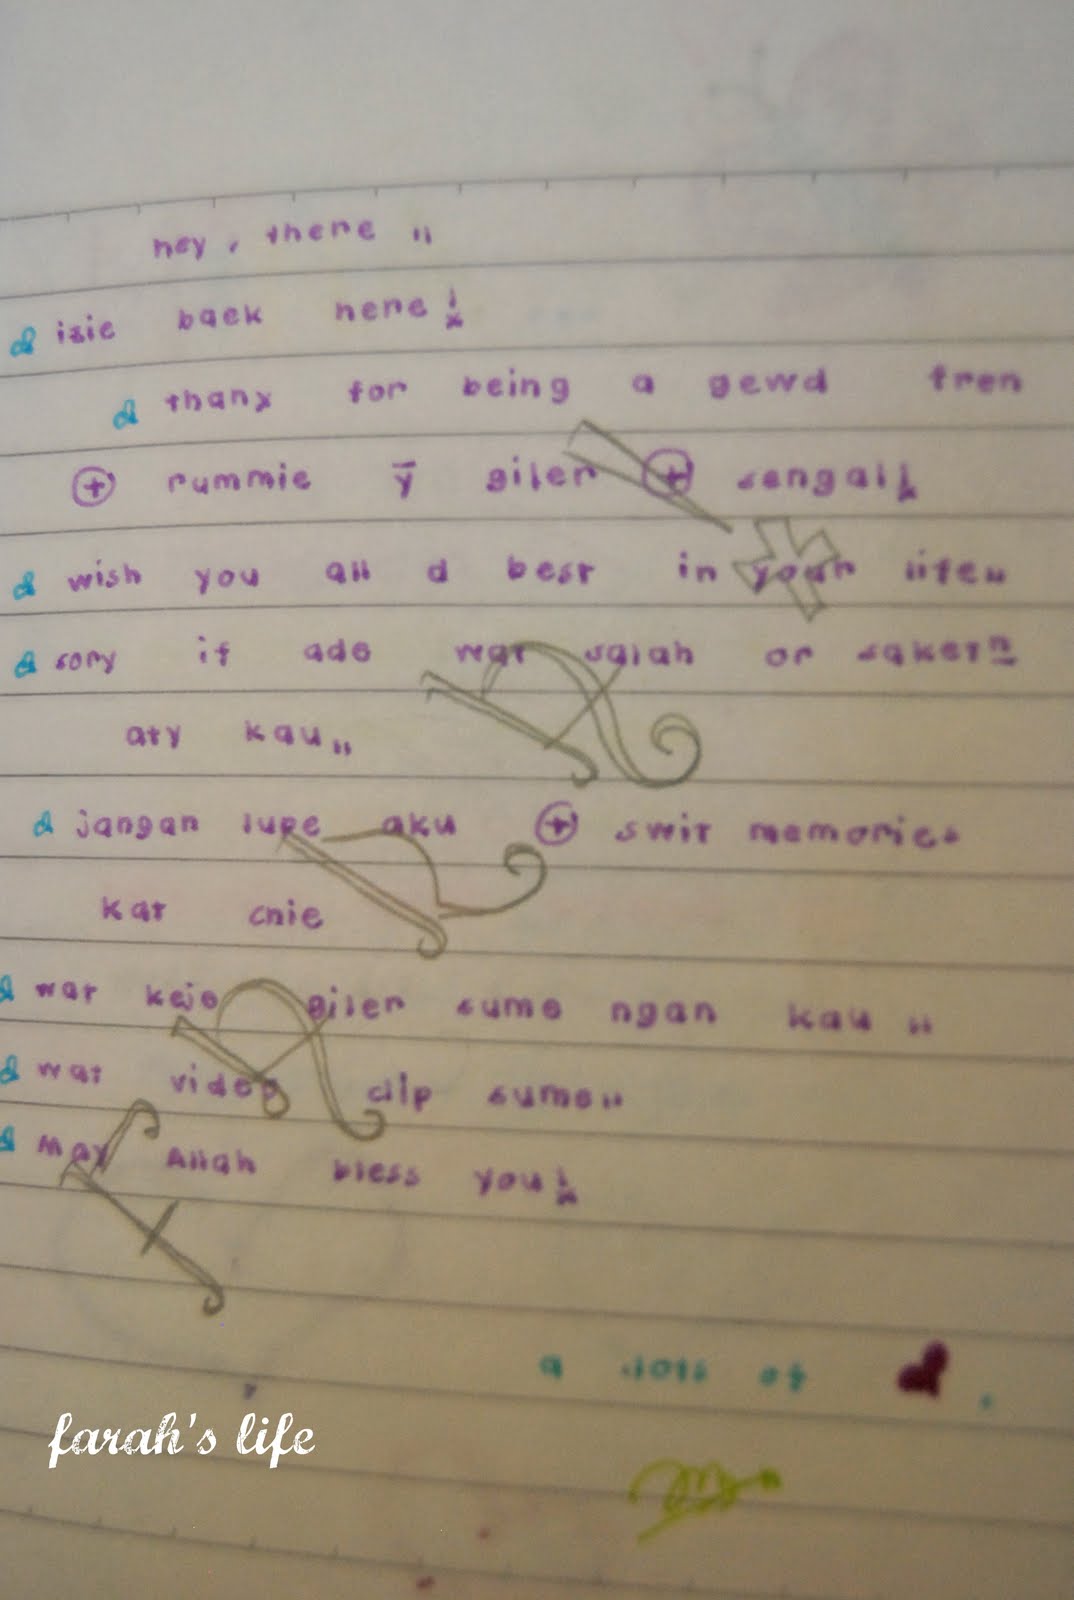 hey, there ,,
izie back here!
thanx for being a gewd fren
+ rummie ȳ giler + sengal!
wish you all d best in your life,,
sory if ado wat salah or saketn
aty kau,,
jangan lupe aku + swit memories
kat cnie
wat kejo giler sumo ngan kau ,,
wat video clip sumo,,
May Allah bless you!
a lott of ♥.
farah's life